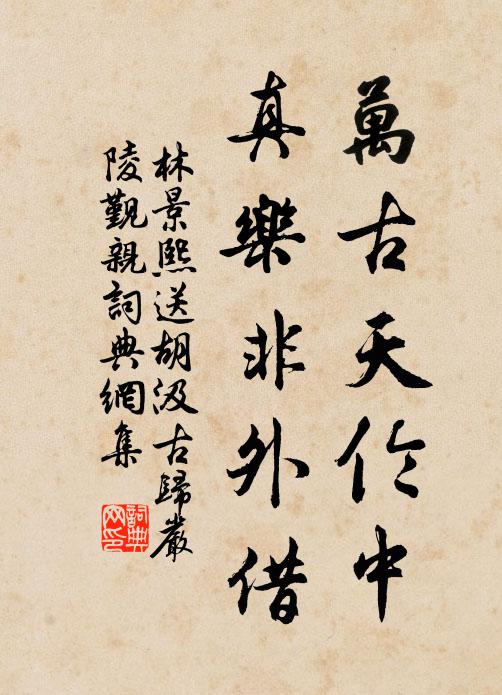 萬古天倫中
真樂非外借
林景熙送胡汲古歸嚴
陵覲親詞典網集
詞典网印